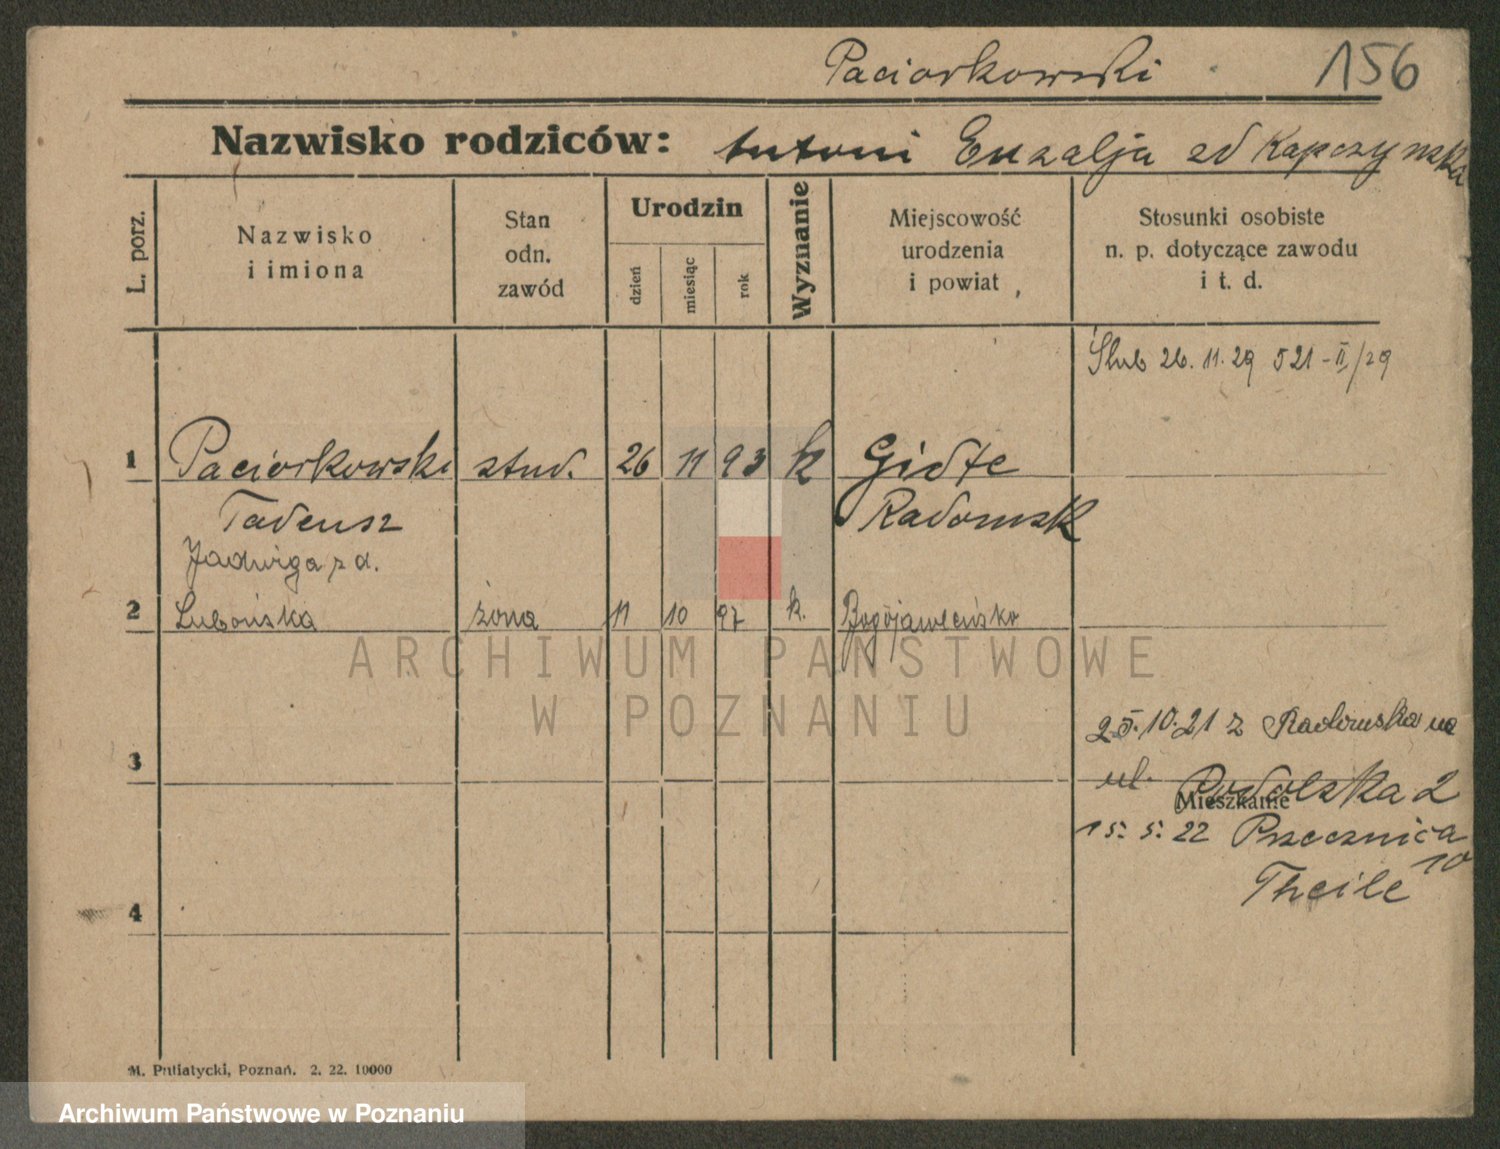 Paciorkowski 156
Nazwisko rodziców: Antoni Euzalja zd Kapczyńska
L. porz.
Nazwisko
i imiona
Stan
odn.
zawód
Urodzin
dzień
miesiąc
rok
Wyznanie
Miejscowość
urodzenia
i powiat
Stosunki osobiste
n. p. dotyczące zawodu
i t. d.
Ślub 26. 11. 29 521 - II/29
1 Paciorkowski stud. 26 11 93 k Gidle
Tadeusz Radomsk
Jadwiga z d.
2 Lubońska żona 11 10 97 k. Bogojawleńsko
ARCHIWUM PAŃSTWOWE
W POZNANIU
25.10.21 z Radomska na
3
ul. Podolska 2
Mieszkanie
15. 5. 22 Przecznica
10
Theile
4
M. Putiatycki, Poznań. 2. 22. 10000
Archiwum Państwowe w Poznaniu